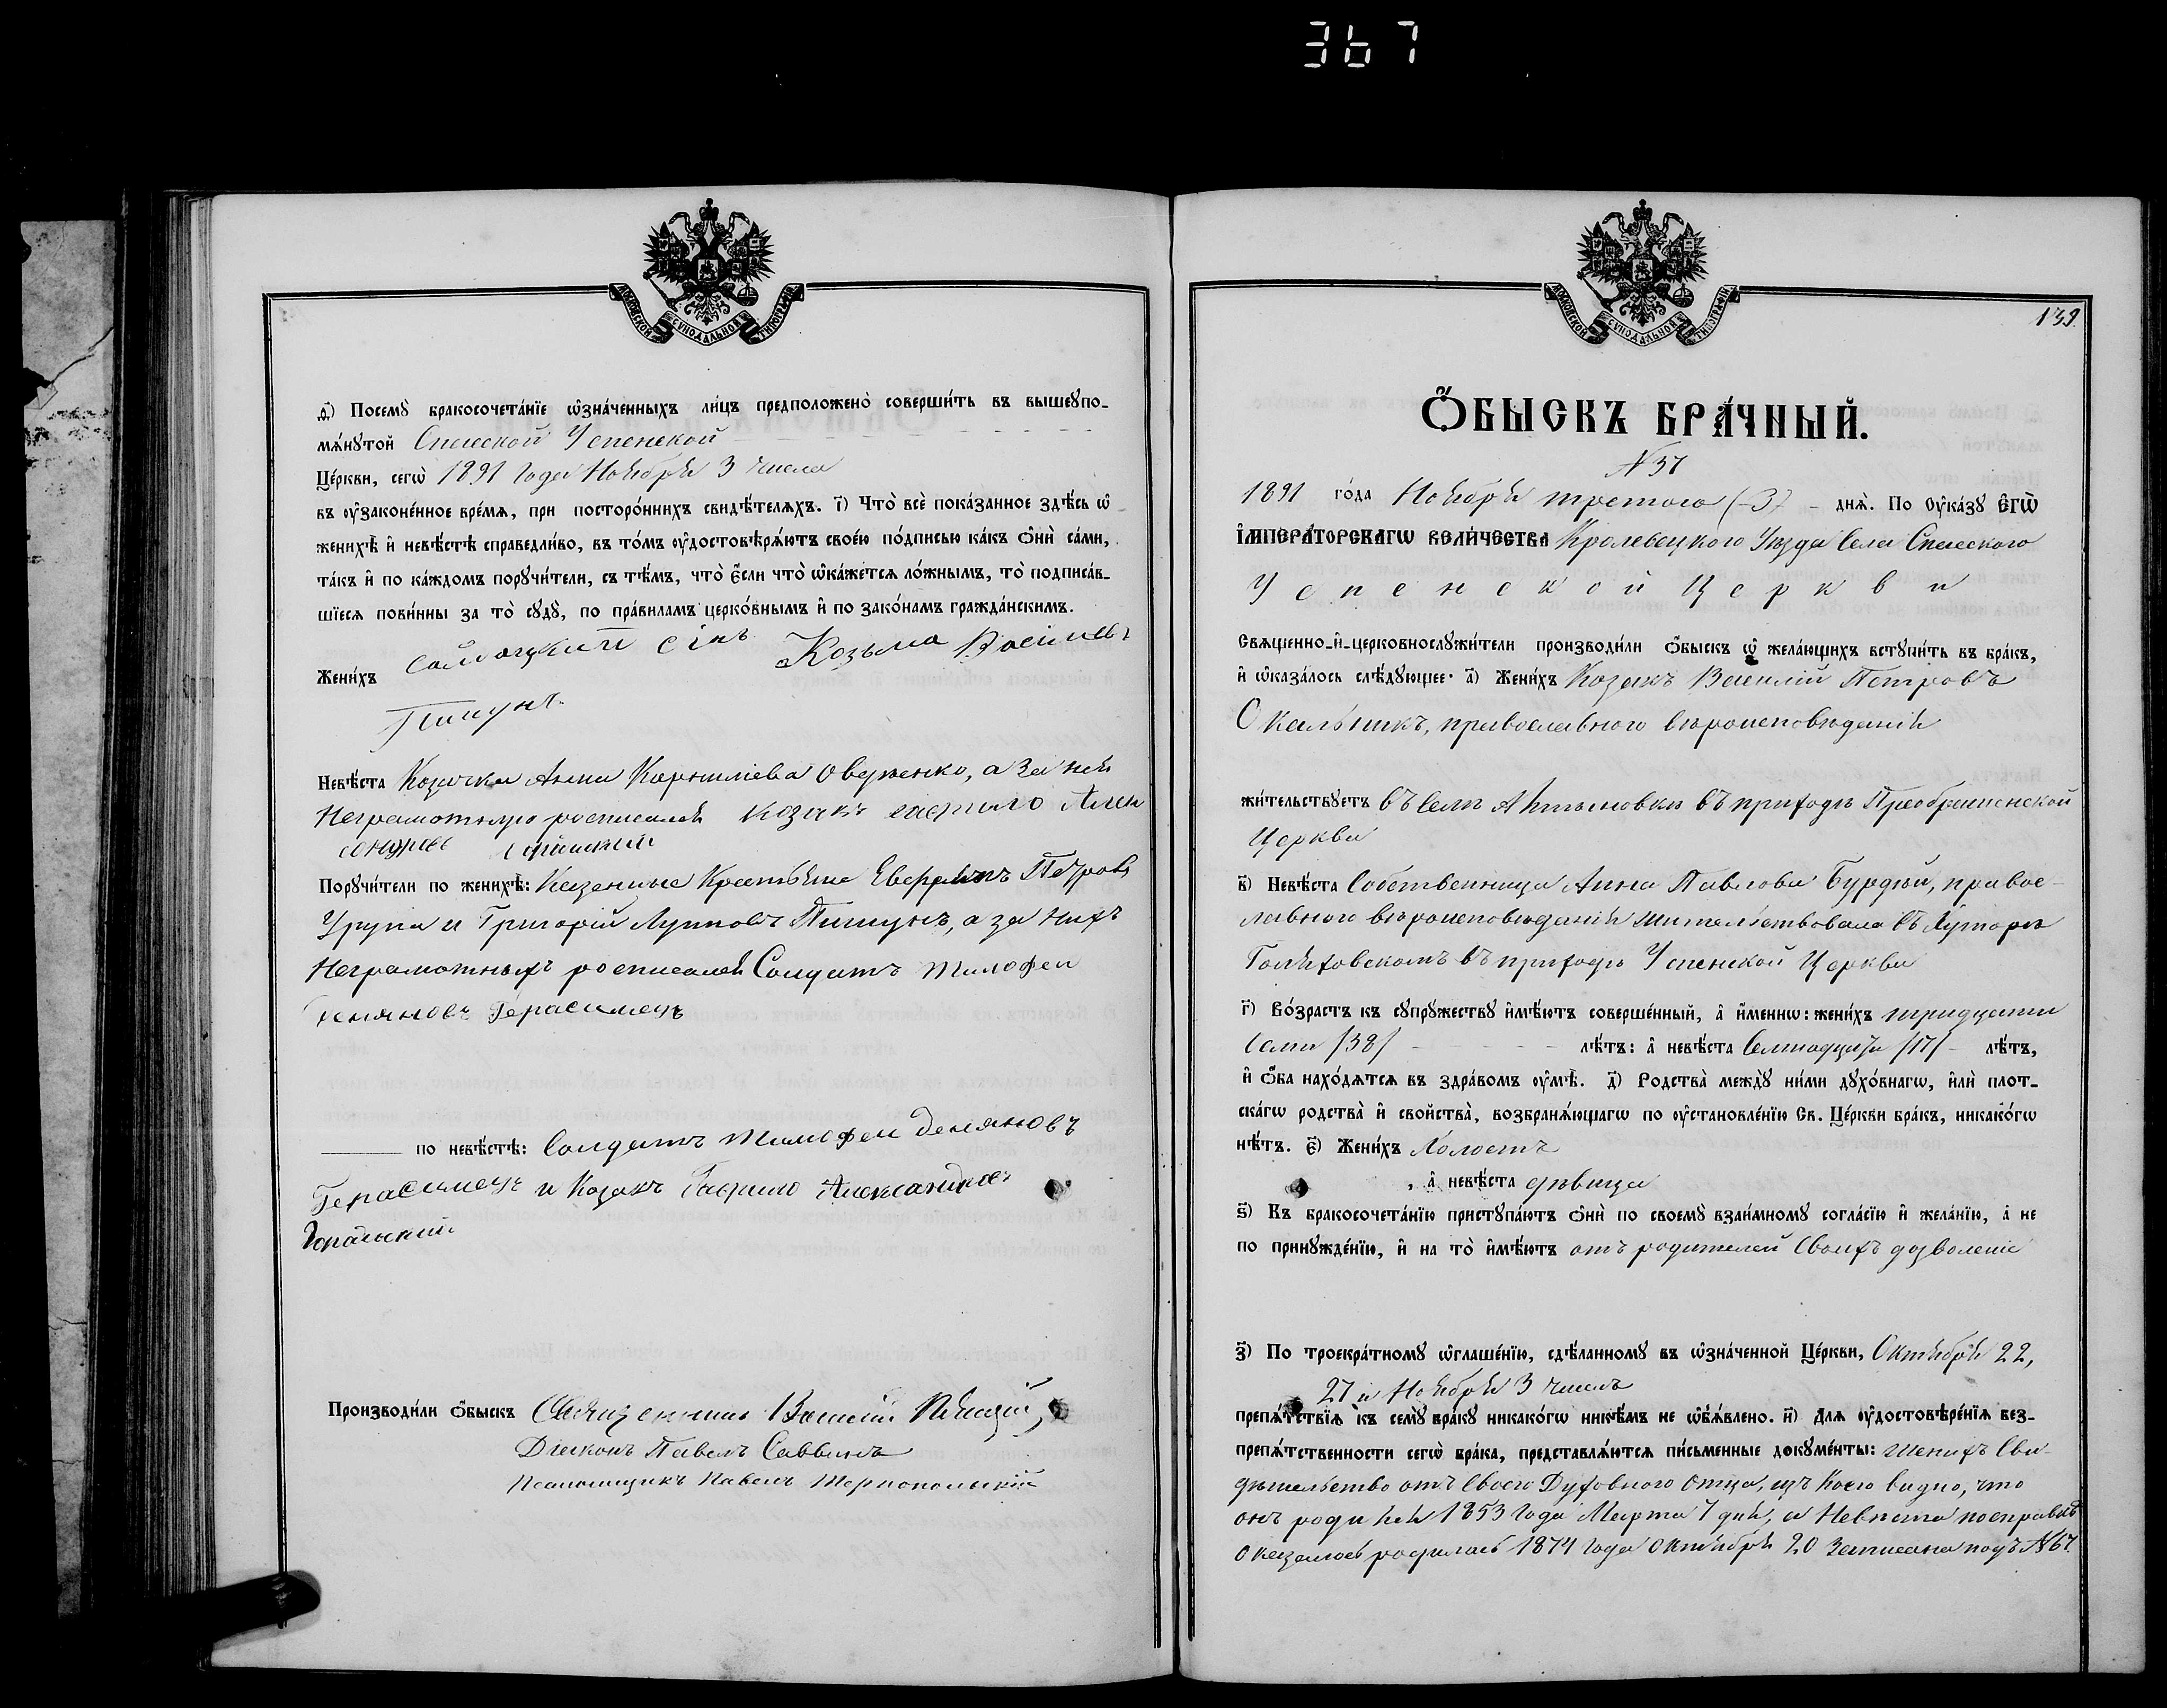 367
МОСКОВСКОЙ СѴНОДАЛЬНОЙ ТИПОГРАФІИ
д҃і) Посемꙋ̀ бракосочета́нїе ѡ҆зна́ченныхъ ли́цъ предположено̀ соверши́ть въ вышеꙋпо-
мѧ́нꙋтой Спасской Успенской
Це́ркви, сегѡ̀ 1891 года Ноября 3 числа
въ ᲂу҆зако́ненное вре́мѧ, при посторо́ннихъ свидѣ́телѧхъ. і҃) Что̀ всѐ пока́занное здѣ́сь ѡ҆
женихѣ̀ и҆ невѣ́стѣ справедли́во, въ то́мъ ᲂу҆достовѣрѧ́ютъ свое́ю по́дписью ка́къ ѻ҆нѝ са́ми,
та́къ и҆ по ка́ждомъ порꙋчи́тели, съ тѣ́мъ, что̀ є҆́сли что̀ ѡ҆ка́жетсѧ ло́жнымъ, то̀ подписа́в-
шїесѧ пови́нны за то̀ сꙋдꙋ̀, по пра́виламъ церко́внымъ и҆ по зако́намъ гражда́нскимъ.
Жени́хъ сінъ Козьма
Пишунъ
Невѣ́ста Козачка Анна Корнилiева а за нея
Неграмотную росписался козакъ Гаврило Алек
сандровъ
Порꙋчи́тели по женихѣ̀: Казенные Крестьяне Петровъ
и Григорій Лупповъ Пишунъ, а за нихъ
Неграмотныхъ росписался Солдатъ Тимофеи
Демяновъ Герасимецъ
по невѣ́стѣ: Солдатъ Тимофеи Демяновъ
Герасимецъ и Козакъ Гаврило Александровъ
Производи́ли ѻ҆́быскъ Священникъ Василій
Діаконъ Павелъ Саввинъ
Псаломщикъ Павелъ Тернопольскій
МОСКОВСКОЙ СѴНОДАЛЬНОЙ ТИПОГРАФІИ
139.
Ѻ҆́БЫСКЪ БРА́ЧНЫЙ.
№ 37
1891 го́да Ноября третого (-3) днѧ̀. По ᲂу҆ка́зꙋ Є҆ГѠ̀
І҆МПЕРА́ТОРСКАГѠ ВЕЛИ́ЧЕСТВА Кролевецкого Уѣзда Села Спасского
Успенской Церкви
Свѧще́нно-и҆-церковнослꙋжи́тели производи́ли ѻ҆́быскъ ѡ҆ жела́ющихъ встꙋпи́ть въ бра́къ,
и҆ ѡ҆каза́лось слѣ́дꙋющее: а҃) Жени́хъ Козакъ Василій Петровъ
православного вѣроисповѣданія
жи́тельствꙋетъ въ селѣ въ приходѣ Преображенской
Церкви
в҃) Невѣ́ста Собственница Анна Павлова Бурдюй, правос-
лавного вѣроисповѣданія жительствовала въ Хуторѣ
въ приходѣ Успенской Церкви
г҃) Во́зрастъ къ сꙋпрꙋ́жествꙋ и҆мѣ́ютъ соверше́нный, а҆ и҆́меннѡ: жени́хъ тридцати
семи /38/ лѣ́тъ: а҆ невѣ́ста Семнадцати /17/ лѣ́тъ,
и҆ ѻ҆́ба нахо́дѧтсѧ въ здра́вомъ ᲂу҆мѣ̀. д҃) Родства̀ междꙋ̀ ни́ми дꙋхо́внагѡ, и҆лѝ плот-
ска́гѡ родства̀ и҆ свойства̀, возбранѧ́ющагѡ по ᲂу҆становле́нїю Св. Це́ркви бра́къ, никако́гѡ
нѣ́тъ. є҃) Жени́хъ Холостъ
, а҆ невѣ́ста дѣвица
ѕ҃) Къ бракосочета́нїю пристꙋпа́ютъ ѻ҆нѝ по своемꙋ̀ взаи́мномꙋ согла́сїю и҆ жела́нїю, а҆ не
по принꙋжде́нїю, и҆ на то̀ и҆мѣ́ютъ отъ родителей своихъ дозволеніе
з҃) По троекра́тномꙋ ѡ҆глаше́нїю, сдѣ́ланномꙋ въ ѡ҆зна́ченной Це́ркви, Октября 22,
27 и Ноября 3 числъ
препѧ́тствїѧ къ семꙋ̀ бра́кꙋ никако́гѡ никѣ́мъ не ѡ҆б̾ѧ́влено. и҃) Для ᲂу҆достовѣре́нїѧ без-
препѧ́тственности сегѡ̀ бра́ка, представлѧ́ютсѧ пи́сьменные докꙋме́нты: женихъ Сви-
дѣтельство отъ Своего Духовного Отца, изъ коего видно, что
онъ родился 1853 года Марта 7 дня, а Невѣста по справкѣ
оказалось родилась 1874 года Октября 20 Записана подъ № 67.